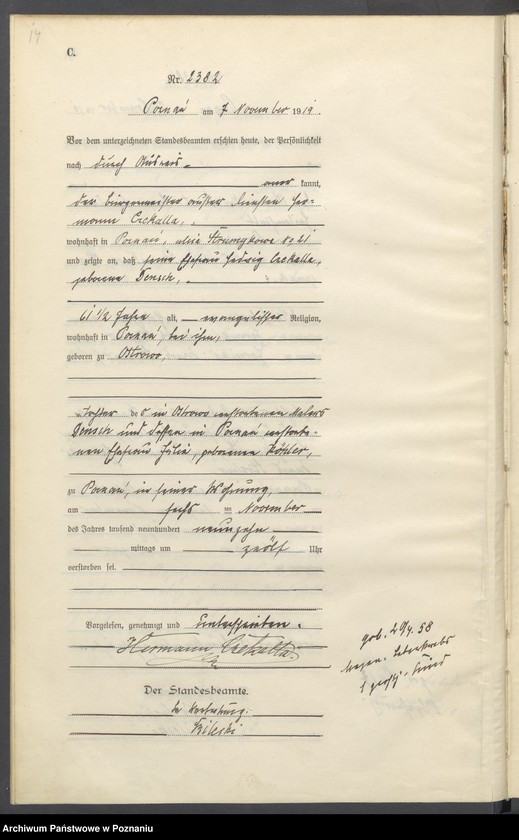 14
C.
Nr. 2382
Poznań am 7 November 1919.
Vor dem unterzeichneten Standesbeamten erschien heute, der Persönlichkeit
nach durch Ausweis
kannt,
der Bürgermeister außer Diensten Her-
mann Czekalla,
wohnhaft in Poznań, ulica No 21
und zeigte an, daß seine Ehefrau Hedwig Czekalla,
geborene Densch,
61 1/2 Jahre alt, evangelischer Religion,
wohnhaft in Poznań, bei ihm,
geboren zu Ostrowo,
Tochter des in Ostrowo verstorbenen Malers
Densch und dessen in Poznań verstorbe-
nen Ehefrau Julie, geborenen Köhler,
zu Poznań, in seiner Wohnung,
am sechs ten November
des Jahres tausend neunhundert neunzehn
mittags um zwölf Uhr
verstorben sei.
Vorgelesen, genehmigt und unterschrieben.
Hermann Czekalla.
Der Standesbeamte.
In Vertretung:
geb. 29/4. 58
1 Kind
Archiwum Państwowe w Poznaniu